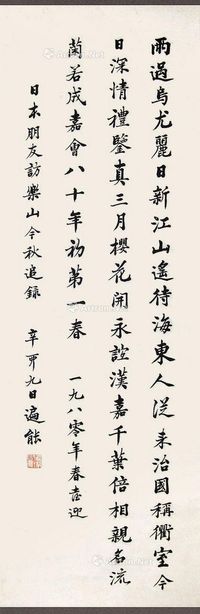 雨過烏尤麗日新江山遙待海東人從来治國稱衢室今
日深情禮鑒真三月櫻花開永誼漢嘉千葉倍相親名流
蘭若成嘉會八十年初第一春 一九八零年春喜迎
日本朋友訪樂山今秋追録 辛酉九日遍能